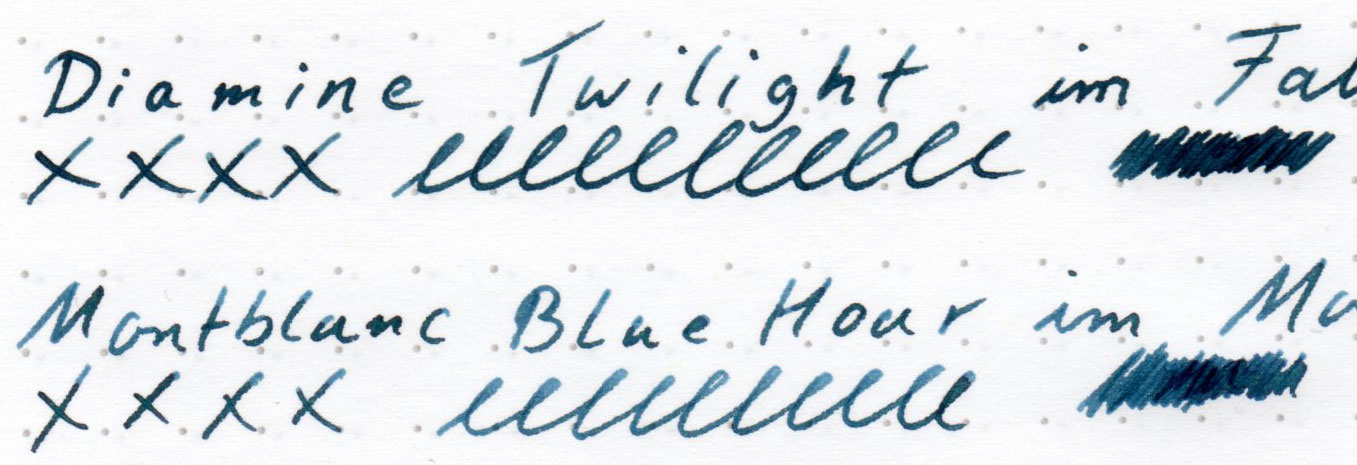 Diamine Twilight im Fal
xxxx elllllllll
Montblanc Blue Hour im Mo
xxxx ellllllll